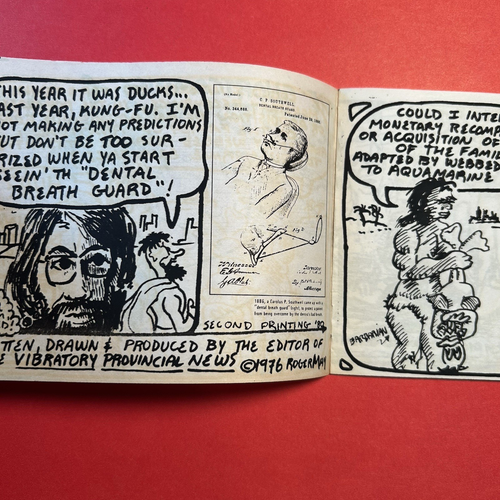 THIS YEAR IT WAS DUCKS...
AST YEAR, KUNG-FU. I'M
OT MAKING ANY PREDICTIONS
UT DON'T BE TOO SUR-
RIZED WHEN YA START
SEEIN' TH "DENTAL
BREATH GUARD"!
C. P. SOUTHWELL
DENTAL BREATH GUARD
No. 344,988.
Patented June 29, 1886.
Fig. 1
Fig. 2
Witnesses
Inventor
1886, a Carolus P. Southwell came up with a
"dental breath guard" to protect a person
from being overcome by the dentist's bad breath.
SECOND PRINTING
TTEN, DRAWN & PRODUCED BY THE EDITOR OF
E VIBRATORY PROVINCIAL NEWS ©1976 ROGER MAY
COULD I INTE
MONETARY RECOM
OR ACQUISITION OF
OF THE FAMI
ADAPTED BY WEBBED
TO AQUAMARINE
BARBARIAN